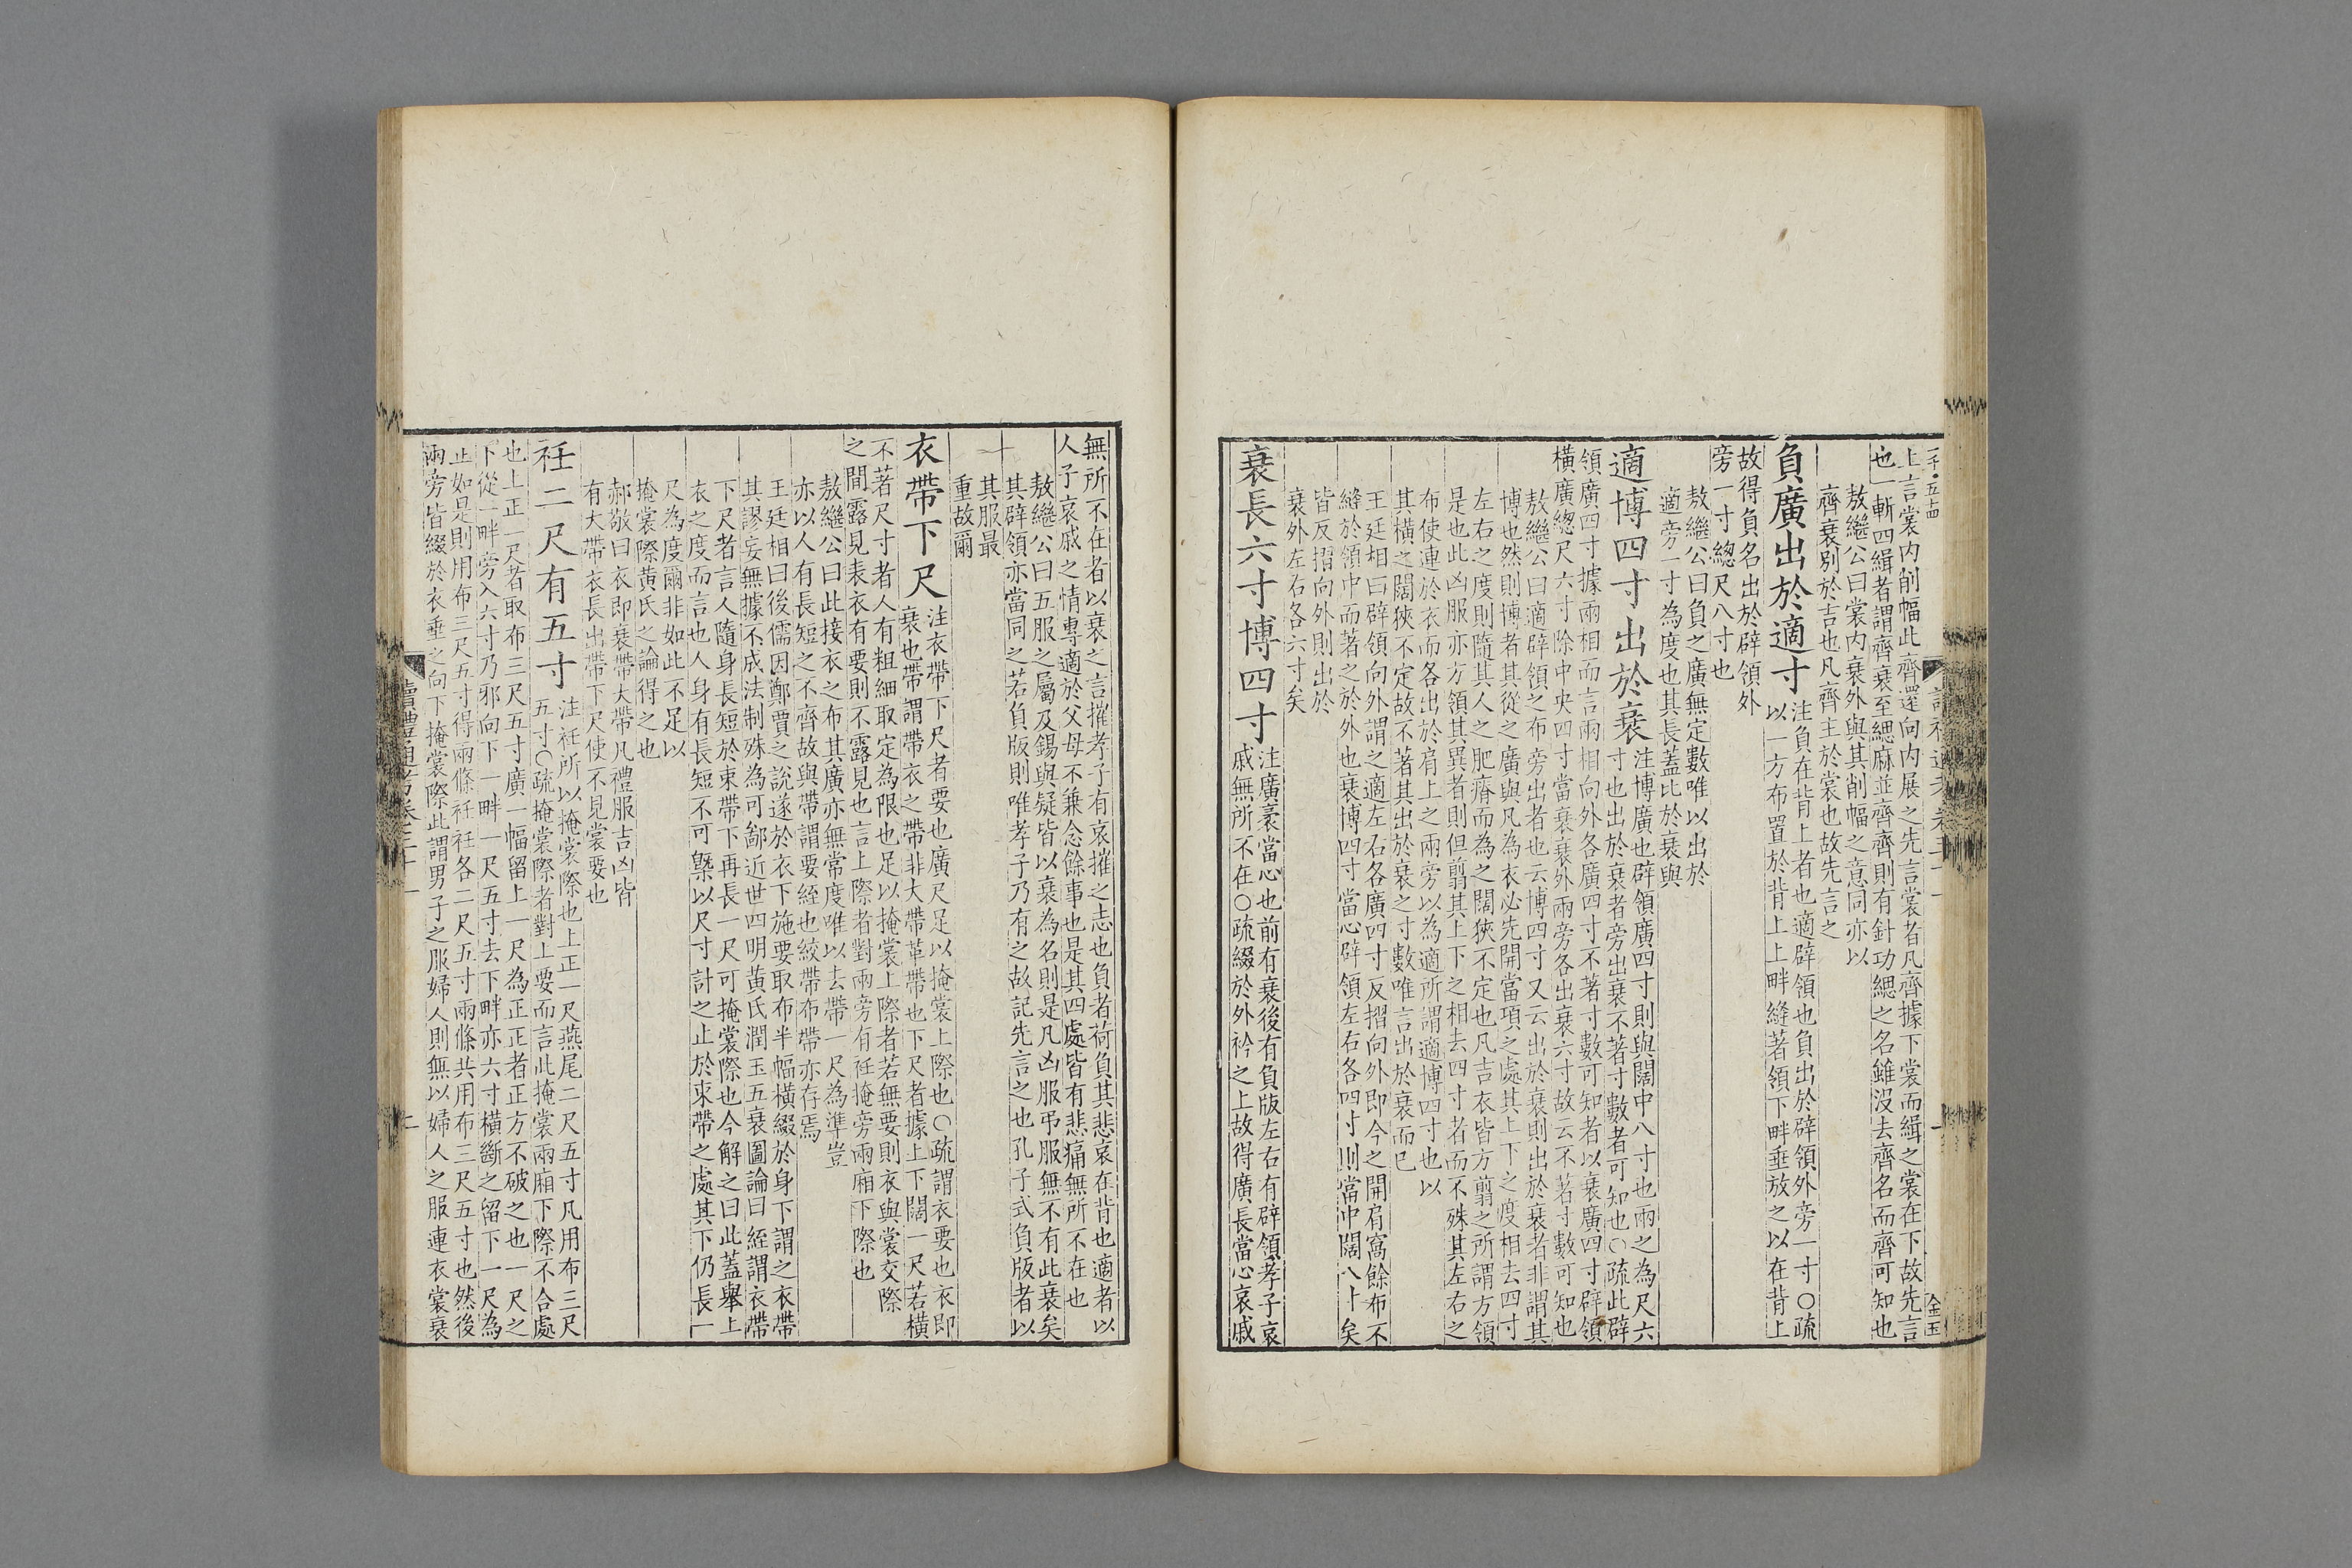 上言裳内削幅此齊還向内展之先言裳者凡齊據下裳而緝之裳在下故先言
也一斬四緝者謂齊衰至緦麻並齊齊則有針功緦之名雖没去齊名而齊可知也
敖繼公曰裳内衰外與其削幅之意同亦以
齊衰别於吉也凡齊主於裳也故先言之
負廣出於適寸
注負在背上者也適辟領也負出於辟領外旁一寸○疏
以一方布置於背上上畔縫著領下畔垂放之以在背上
故得負名出於辟領外
旁一寸總尺八寸也
敖繼公曰負之廣無定數唯以出於
適旁一寸為度也其長蓋比於衰與
適博四寸出於衰
注博廣也辟領廣四寸則與闊中八寸也兩之為尺六
寸也出於衰者旁出衰不著寸數者可知也○疏此辟
領廣四寸據兩相而言兩相向外各廣四寸不著寸數可知者以衰廣四寸辟領
橫廣總尺六寸除中央四寸當衰衰外兩旁各出衰六寸故云不著寸數可知也
敖繼公曰適辟領之布旁出者也云博四寸又云出於衰則出於衰者非謂其
博也然則博者其從之廣與凡為衣必先開當項之處其上下之度相去四寸
左右之度則隨其人之肥瘠而為之闊狹不定也凡吉衣皆方翦之所謂方領
是也此凶服亦方領其異者則但翦其上下之相去四寸者而不殊其左右之
布使連於衣而各出於肩上之兩旁以為適所謂適博四寸也以
其橫之闊狹不定故不著其出於衰之寸數唯言出於衰而已
王廷相曰辟領向外謂之適左右各廣四寸反摺向外即今之開肩窩餘布不
縫於領中而著之於外也衰博四寸當心辟領左右各四寸則當中闊八寸矣
皆反摺向外則出於
衰外左右各六寸矣
衰長六寸博四寸
注廣袤當心也前有衰後有負版左右有辟領孝子哀
戚無所不在○疏綴於外衿之上故得廣長當心哀戚
無所不在者以衰之言摧孝子有哀摧之志也負者荷負其悲哀在背也適者以
人子哀戚之情專適於父母不兼念餘事也是其四處皆有悲痛無所不在也
敖繼公曰五服之屬及錫與疑皆以衰為名則是凡凶服弔服無不有此衰矣
其辟領亦當同之若負版則唯孝子乃有之故記先言之也孔子式負版者以
其服最
重故爾
衣帶下尺
注衣帶下尺者要也廣尺足以掩裳上際也○疏謂衣要也衣即
衰也帶謂帶衣之帶非大帶革帶也下尺者據上下闊一尺若橫
不著尺寸者人有粗細取定為限也足以掩裳上際者若無要則衣與裳交際
之間露見表衣有要則不露見也言上際者對兩旁有衽掩旁兩廂下際也
敖繼公曰此接衣之布其廣亦無常度唯以去帶一尺為準豈
亦以人有長短之不齊故與帶謂要絰也絞帶布帶亦存焉
王廷相曰後儒因鄭賈之說遂於衣下施要取布半幅橫綴於身下謂之衣帶
其謬妄無據不成法制殊為可鄙近世四明黄氏潤玉五衰圖論曰絰謂衣帶
下尺者言人隨身長短於束帶下再長一尺可掩裳際也今解之曰此蓋舉上
衣之度而言也人身有長短不可槩以尺寸計之止於束帶之處其下仍長一
尺為度爾非如此不足以
掩裳際黄氏之論得之也
郝敬曰衣即衰帶大帶凡禮服吉凶皆
有大帶衣長出帶下尺使不見裳要也
衽二尺有五寸
注衽所以掩裳際也上正一尺燕尾二尺五寸凡用布三尺
五寸○疏掩裳際者對上要而言此掩裳兩廂下際不合處
也上正一尺者取布三尺五寸廣一幅留上一尺為正正者正方不破之也一尺之
下從一畔旁入六寸乃邪向下一畔一尺五寸去下畔亦六寸橫斷之留下一尺為
正如是則用布三尺五寸得兩條衽衽各二尺五寸兩條共用布三尺五寸也然後
兩旁皆綴於衣垂之向下掩裳際此謂男子之服婦人則無以婦人之服連衣裳衰
讀禮通考卷三十一
二